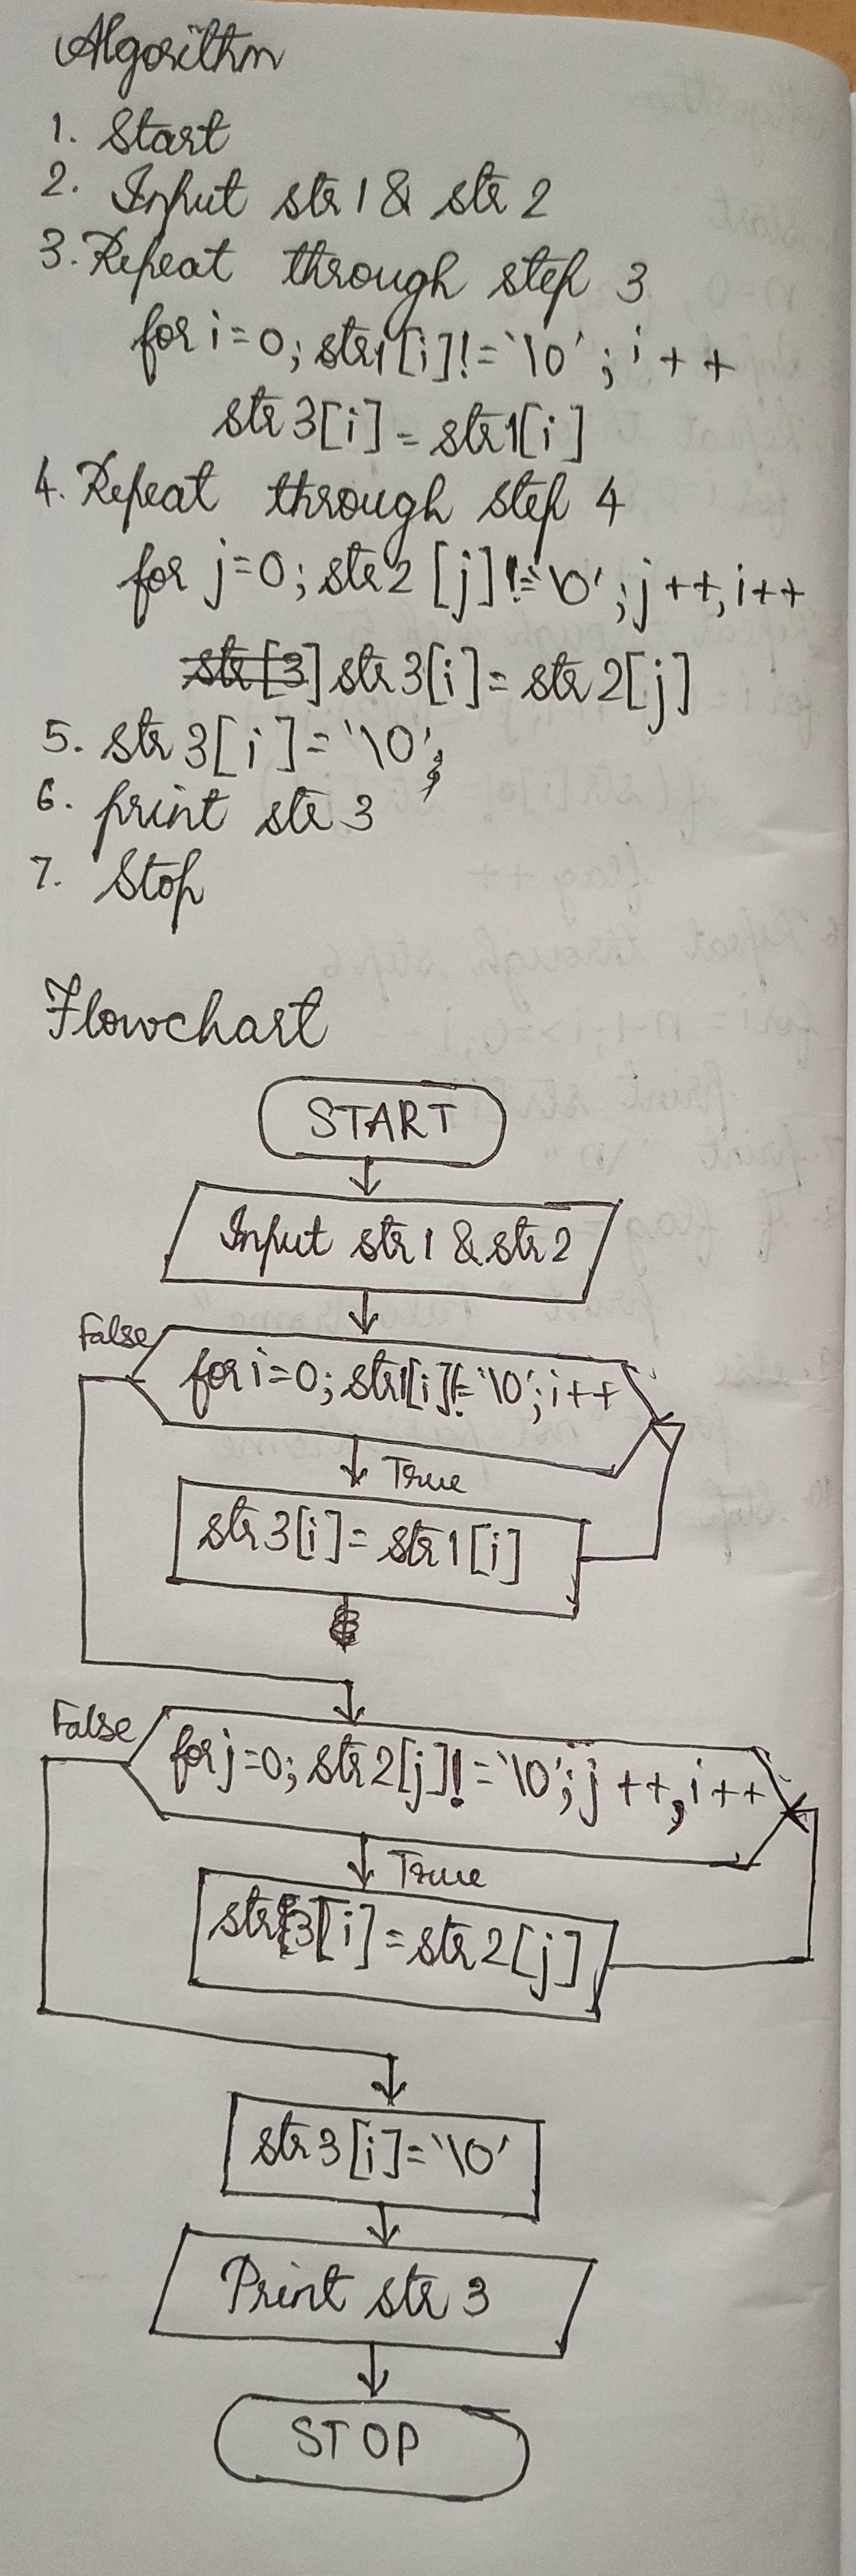 Algorithm
1. Start
2. Input str 1 & str 2
3. Repeat through step 3
for i=0; str1[i]!='\0'; i++
str3[i]=str1[i]
4. Repeat through step 4
for j=0; str2[j]!='\0'; j++, i++
str[3] str3[i]=str2[j]
5. str3[i]='\0';
6. print str 3
7. Stop
Flowchart
START
Input str 1 & str 2
False
for i=0; str1[i]!='\0'; i++
True
str3[i]=str1[i]
False
for j=0; str2[j]!='\0'; j++, i++
True
str3[i]=str2[j]
str3[i]='\0'
Print str 3
STOP